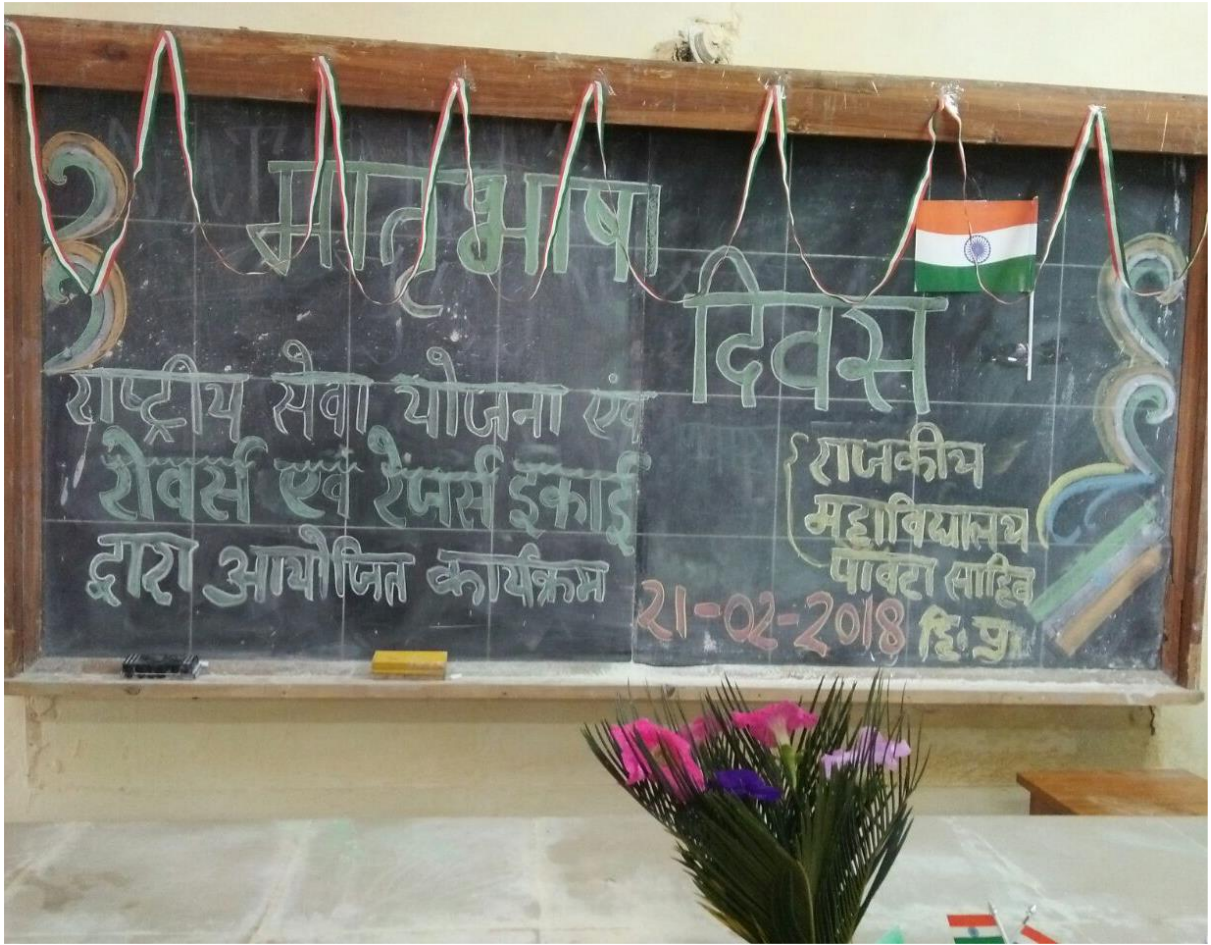 मातृभाषा
दिवस
राष्ट्रीय सेवा योजना एवं
रोवर्स एवं रेंजर्स इकाई
द्वारा आयोजित कार्यक्रम
राजकीय
महाविद्यालय
पांवटा साहिब
हि.प्र.
21-02-2018